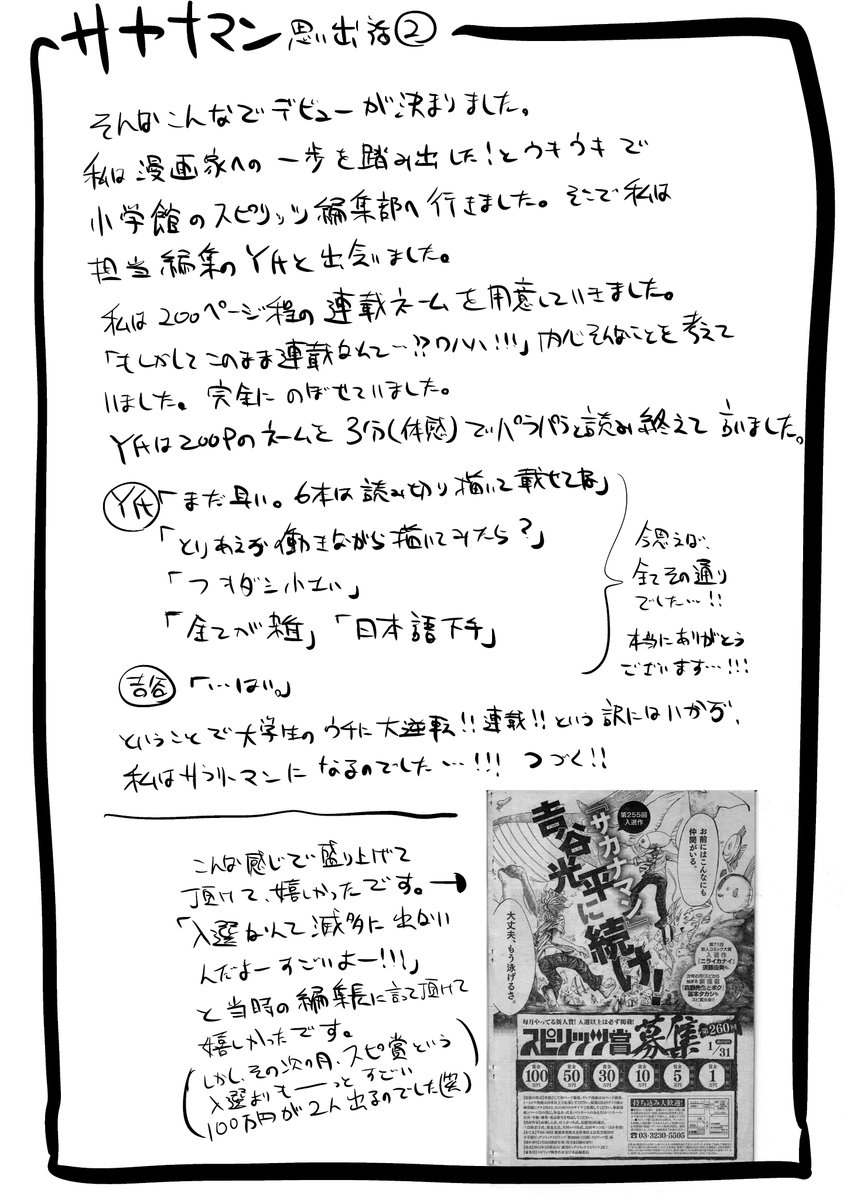 サカナマン 思い出話②
そんなこんなでデビューが決まりました。
私は漫画家への一歩を踏み出した!とウキウキで
小学館のスピリッツ編集部へ行きました。そこで私は
担当編集のY氏と出会いました。
私は200ページ程の連載ネームを用意していきました。
「もしかしてこのまま連載なんて…!?ワハハ!!!」内心そんなことを考えて
いました。完全にのぼせていました。
Y氏は200Pのネームを3分(体感)でパラパラと読み終えて言いました。
Y氏「まだ早い。6本は読み切り描いて載せてな」
「とりあえず働きながら描いてみたら?」
「フキダシ小さい」
「全てが雑」「日本語下手」
今思えば、
全てその通り
でした…!!
本当にありがとう
ございます…!!!
吉谷「…はい。」
ということで大学生のウチに大逆転!!連載!!という訳にはいかず、
私はサラリーマンになるのでした…!!! つづく!!
こんな感じで盛り上げて
頂けて、嬉しかったです。→
「入選なんて滅多に出ない
んだよーすごいよー!!!」
と当時の編集長に言って頂けて
嬉しかったです。
(しかし、その次の月、スピ賞という
入選よりも――っとすごい
100万円が2人出るのでした(笑))
第255回
入選作
『サカナマン』
吉谷光平に続け!
お前にはこんなにも
仲間がいる。
大丈夫、もう泳げるさ。
第71回
新人コミック大賞
入選作
『ニライカナイ』
須藤佑実も、
毎月やってる新人賞!入選以上は必ず掲載!
スピリッツ賞募集
第260回
1/31
賞金 100万円
賞金 50万円
賞金 30万円
賞金 10万円
賞金 5万円
賞金 1万円
持ち込み大歓迎!
☎03-3230-5505